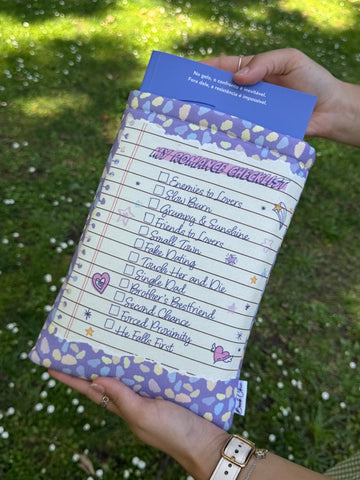 No gelo, o confronto é inevitável.
Fora dele, a resistência é impossível.
MY ROMANCE CHECKLIST
Enemies to Lovers
Slow Burn
Grumpy & Sunshine
Friends to Lovers
Small Town
Fake Dating
Touch Her and Die
Single Dad
Brother's Bestfriend
Second Chance
Forced Proximity
He Falls First